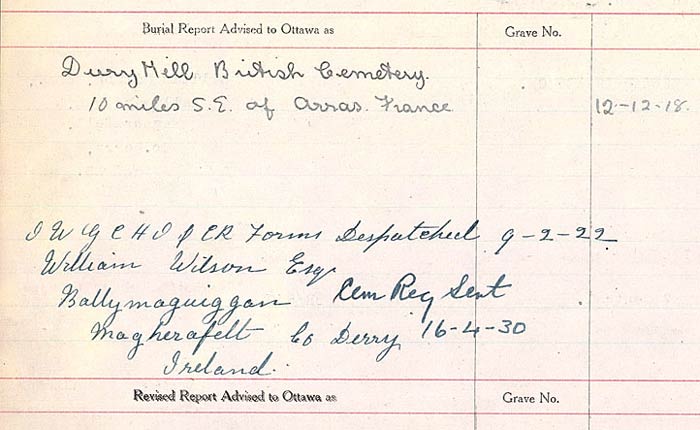 Burial Report Advised to Ottawa as Grave No.
Dury Mill British Cemetery.
10 miles S.E. of Arras. France 12-12-18.
I W G C H I & CR Forms Despatched 9-2-22
William Wilson Esq
Ballymaguiggan Cem Reg Sent
Magherafelt Co Derry 16-4-30
Ireland.
Revised Report Advised to Ottawa as Grave No.